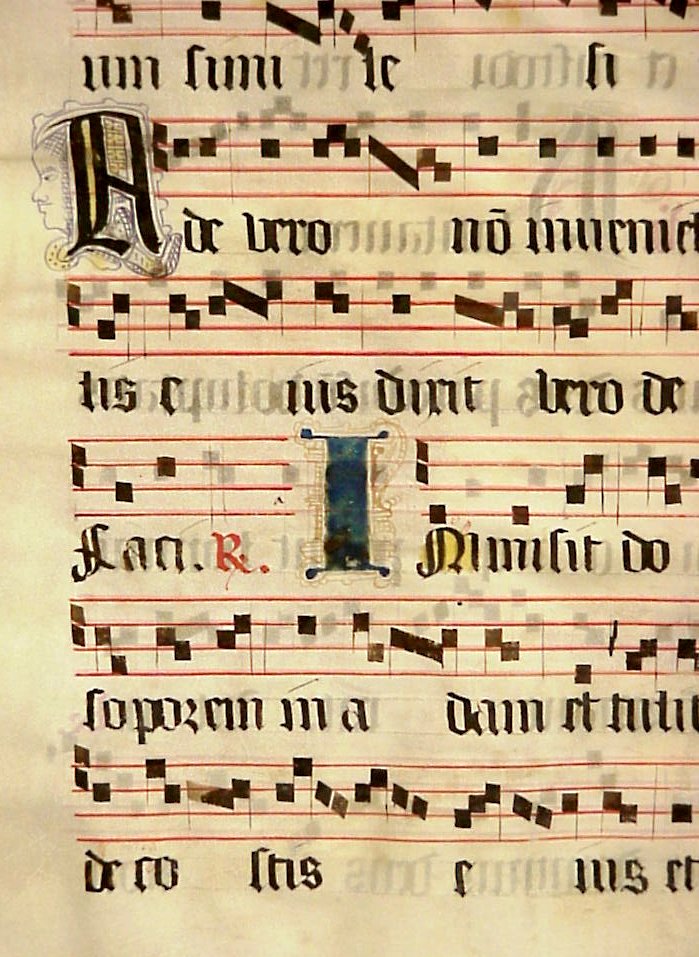 um simi le si
Ade vero nō inueniet
tis e ius dixit vero de
Faci. R. INmisit do
soporem in a dam et tulit
de co stis e ius et